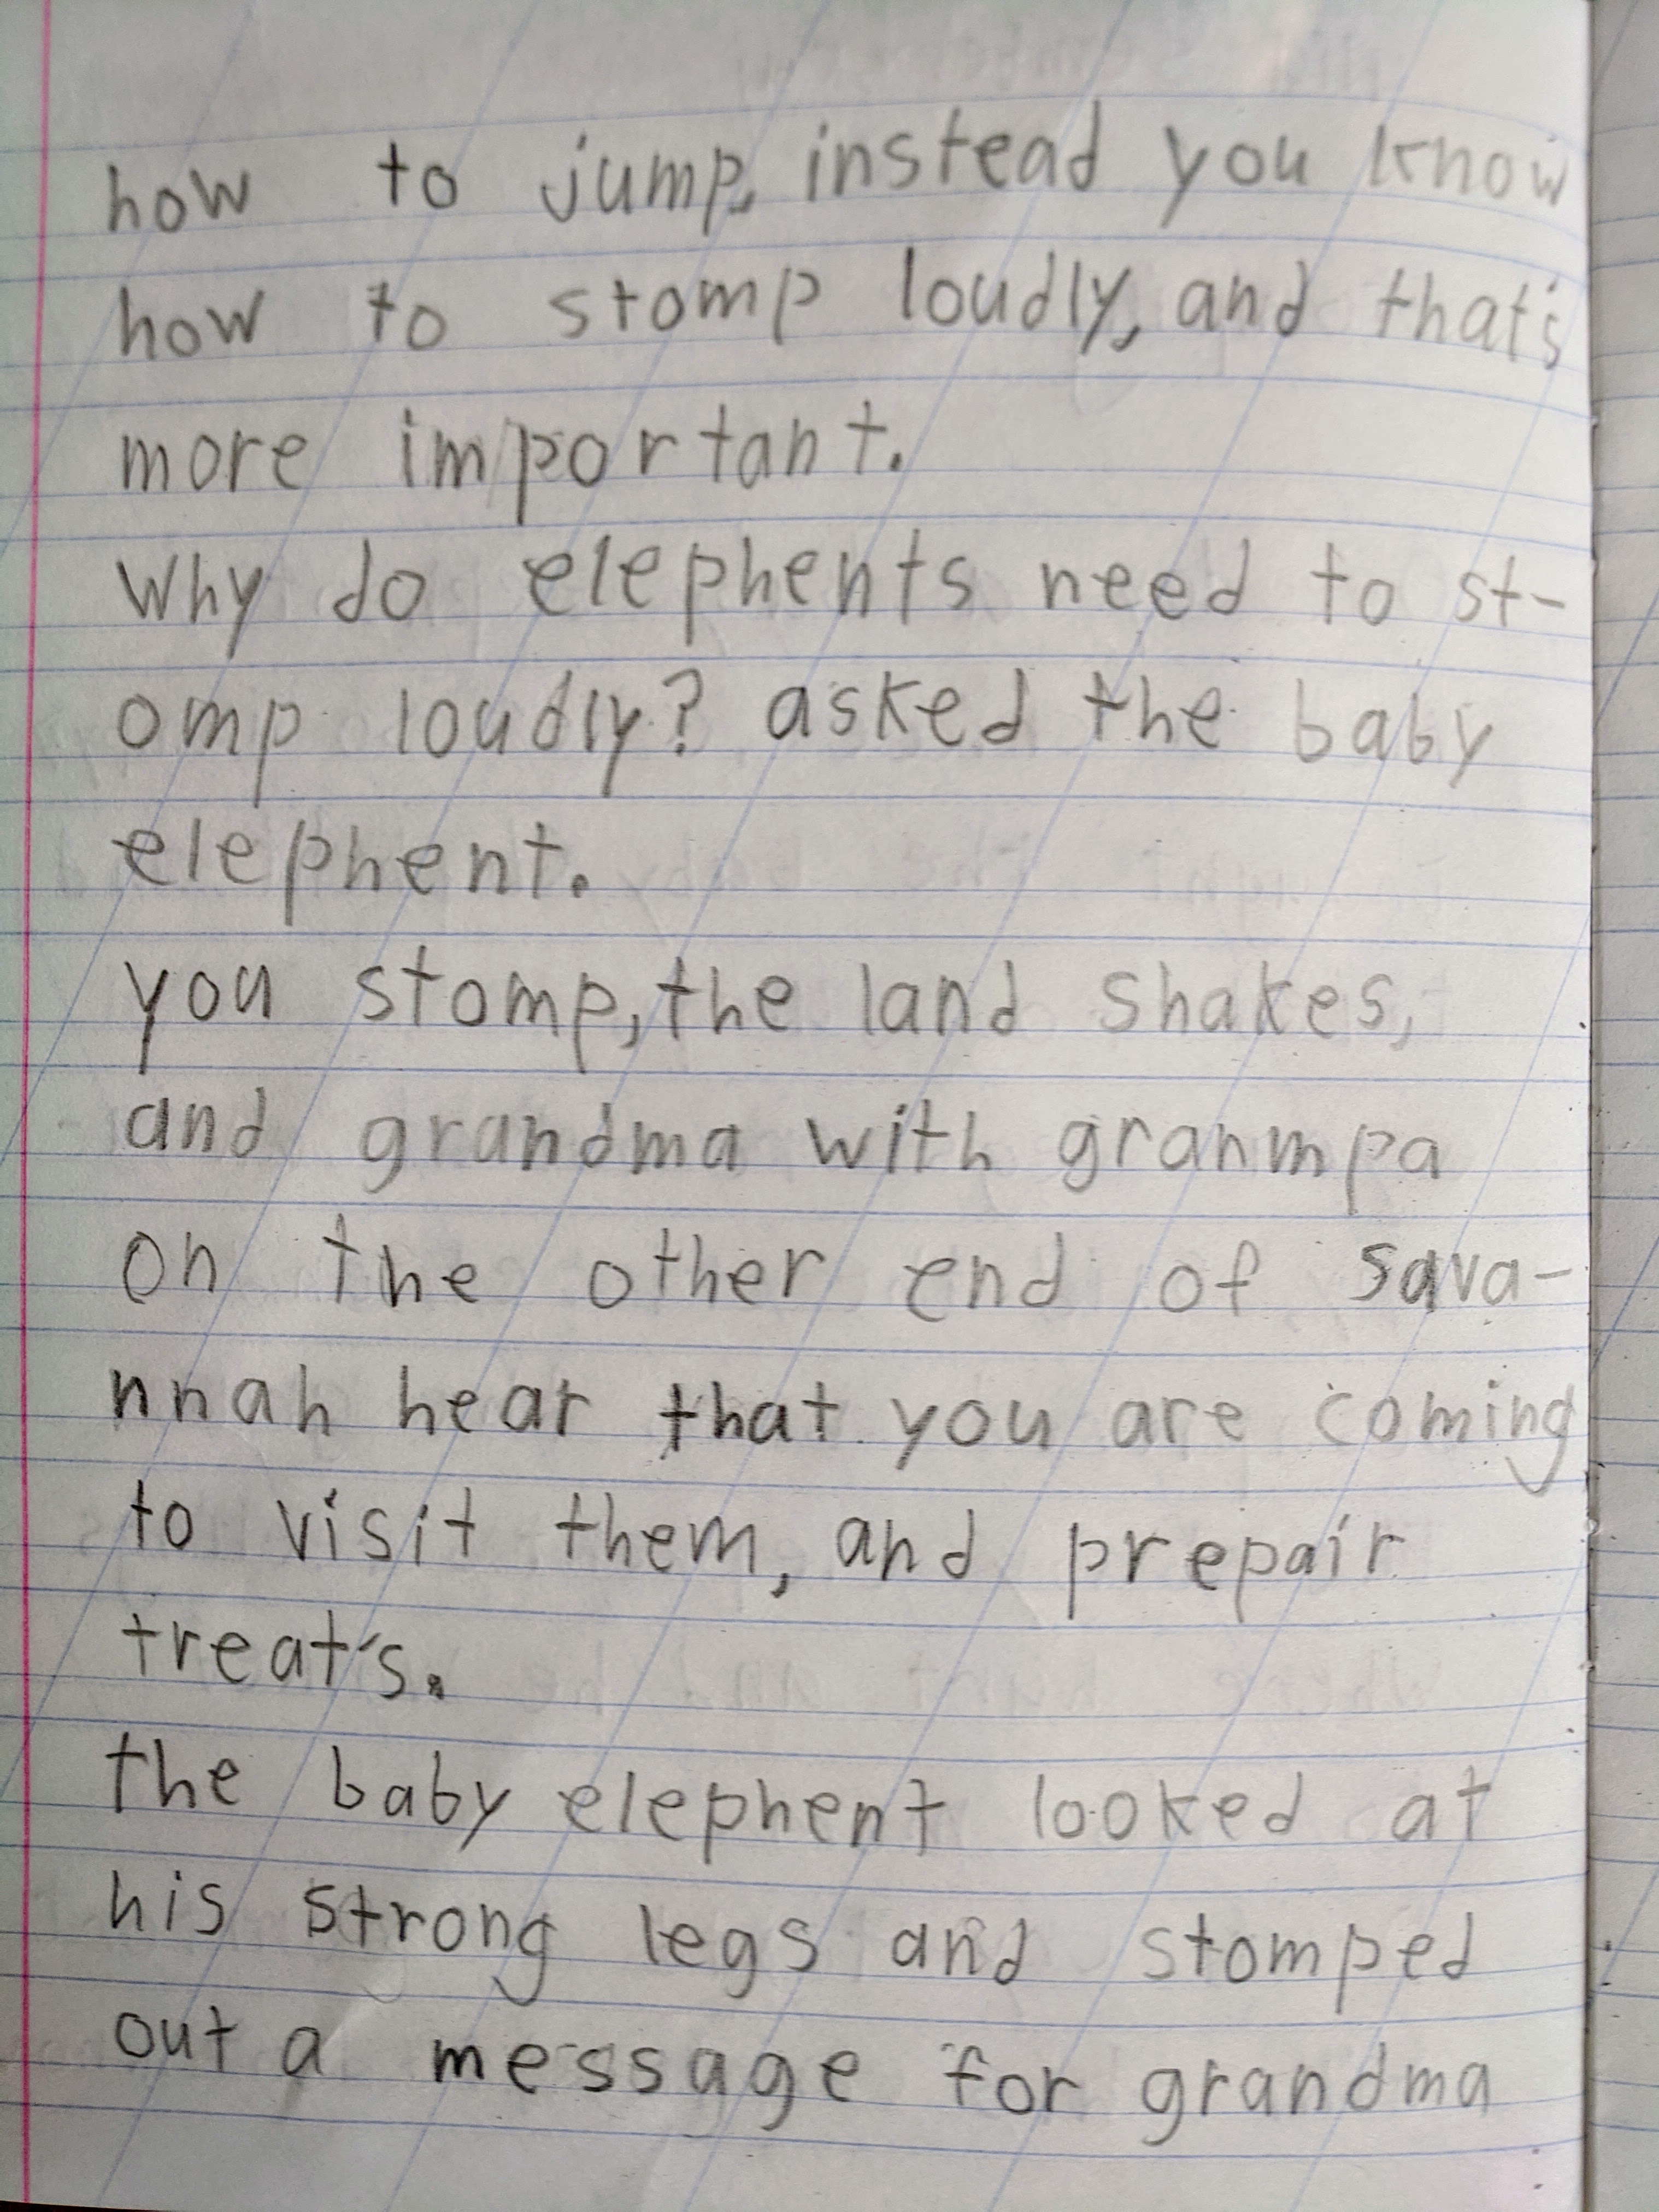 how to jump, instead you know
how to stomp loudly, and that's
more important.
Why do elephents need to st-
omp loudly? asked the baby
elephent.
you stomp, the land shakes,
and grandma with granmpa
on the other end of sava-
nnah hear that you are coming
to visit them, and prepair
treat's.
the baby elephent looked at
his strong legs and stomped
out a message for grandma